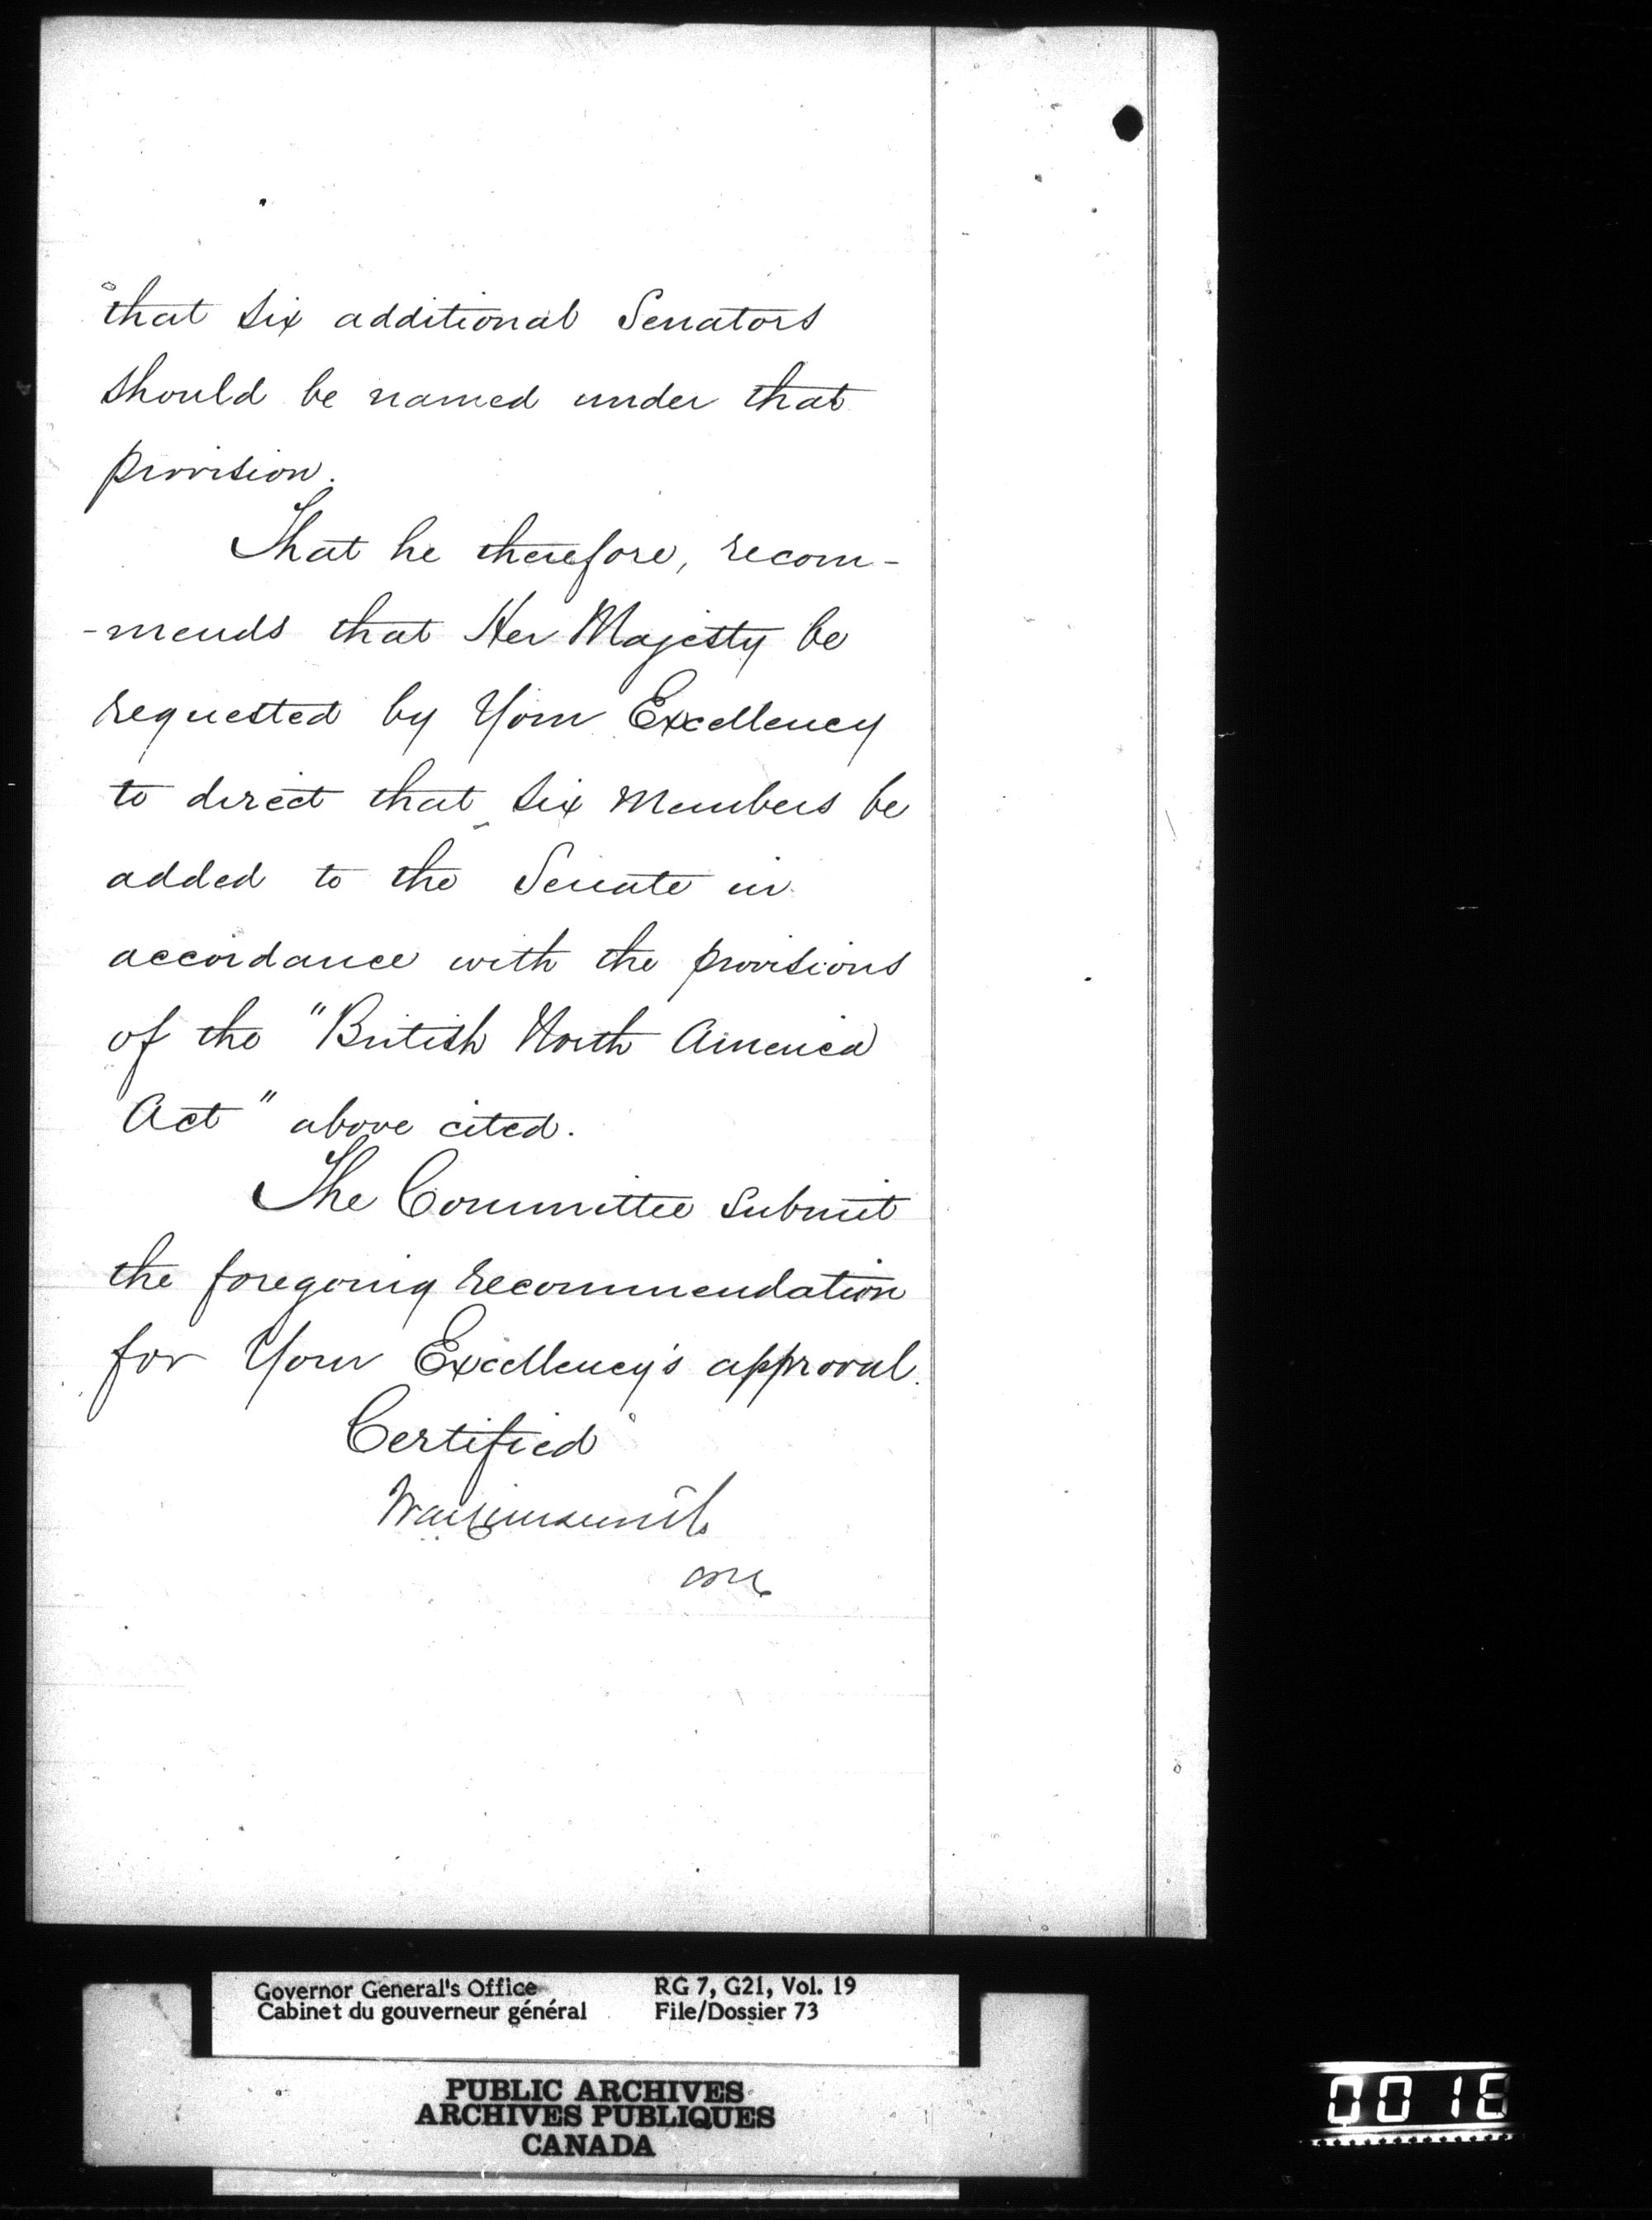 that six additional Senators
should be named under that
provision.
That he therefore, recom-
-mends that Her Majesty be
requested by Your Excellency
to direct that six Members be
added to the Senate in
accordance with the provisions
of the "British North America
Act" above cited.
The Committee submit
the foregoing recommendation
for Your Excellency's approval.
Certified
Governor General's Office RG 7, G21, Vol. 19
Cabinet du gouverneur général File/Dossier 73
PUBLIC ARCHIVES
ARCHIVES PUBLIQUES
CANADA